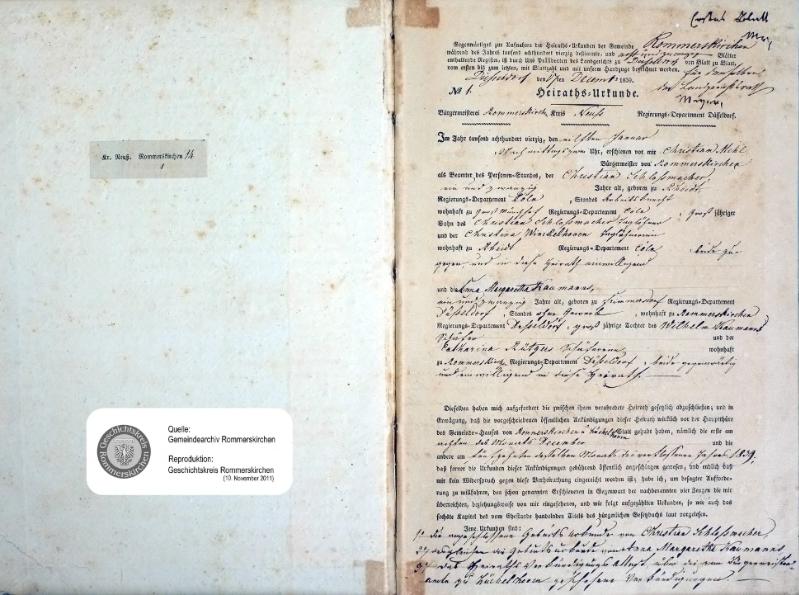 Kr. Neuß. Rommerskirchen 14
1
Quelle:
Gemeindearchiv Rommerskirchen
Reproduktion:
Geschichtskreis Rommerskirchen
(10. November 2011)
Geschichtskreis
Rommerskirchen
Erstes Blatt
Gegenwärtiges zur Aufnahme der Heiraths-Urkunden der Gemeinde Rommerskirchen
während des Jahres tausend achthundert vierzig bestimmte, und Blätter
enthaltende Register, ist durch Uns Präsidenten des Landgerichts zu Düsseldorf von Blatt zu Blatt,
vom ersten bis zum letzten, mit Blattzahl und mit unserm Handzuge bezeichnet worden.
Düsseldorf den Decemb 1839.
№ 1. Heiraths-Urkunde.
Bürgermeisterei Rommerskirchen Kreis Neuß Regierungs-Department Düsseldorf.
Im Jahr tausend achthundert vierzig, den eilften Januar
Nachmittags Uhr, erschienen vor mir Christian Mehl
Bürgermeister von Rommerskirchen
als Beamter des Personen-Standes, der Christian Schloßmacher,
ein und zwanzig Jahre alt, geboren zu Rheidt
Regierungs-Departement Cöln, Standes
wohnhaft zu Regierungs-Departement Cöln, groß jähriger
Sohn des Christian Schloßmacher
und der Christina
wohnhaft zu Rheidt Regierungs-Departement Cöln, beide
gegen und in diese Heirath einwilligend
und die Anna Margaretha Kaumanns,
ein und zwanzig Jahre alt, geboren zu Regierungs-Departement
Düsseldorf, Standes ohne Gewerb, wohnhaft zu Rommerskirchen
Regierungs-Departement Düsseldorf, groß jährige Tochter des Wilhelm Kaumanns
Schäfer und der
Catharina wohnhaft
zu Rommerskirchen Regierungs-Departement Düsseldorf, beide gegenwärtig
und einwilligend in diese Heirath.
Dieselben haben mich aufgefordert die zwischen ihnen verabredete Heirath gesetzlich abzuschließen; und in
Erwägung, daß die vorgeschriebenen öffentlichen Ankündigungen dieser Heirath wirklich vor der Hauptthüre
des Gemeinde-Hauses von Rommerskirchen Statt gehabt haben, nämlich die erste am
achten des Monats December und die
andere am desselben Monats des verflossenen Jahres 1839,
daß ferner die Urkunden dieser Ankündigungen gebührend öffentlich angeschlagen gewesen, und endlich daß
mir kein Widerspruch gegen diese Verheirathung eingereicht worden ist; habe ich, um besagter Aufforderung
zu willfahren, den schon genannten Erschienenen in Gegenwart der nachbenannten vier Zeugen die mir
überreichten, beziehungsweise von mir eingesehenen, und wie folgt aufgezählten Urkunden, so wie auch das
sechste Kapitel des vom Ehestande handelnden Titels des bürgerlichen Gesetzbuchs laut vorgelesen.
Jene Urkunden sind:
1) die angeschlossene Geburts Urkunde von Christian Schloßmacher,
2) desgleichen die Geburts Urkunde von Anna Margaretha Kaumanns,
3) das Heiraths Verkündigungs Attest, über die vom Bürgermeister
amte zu geschehenen Verkündigungen